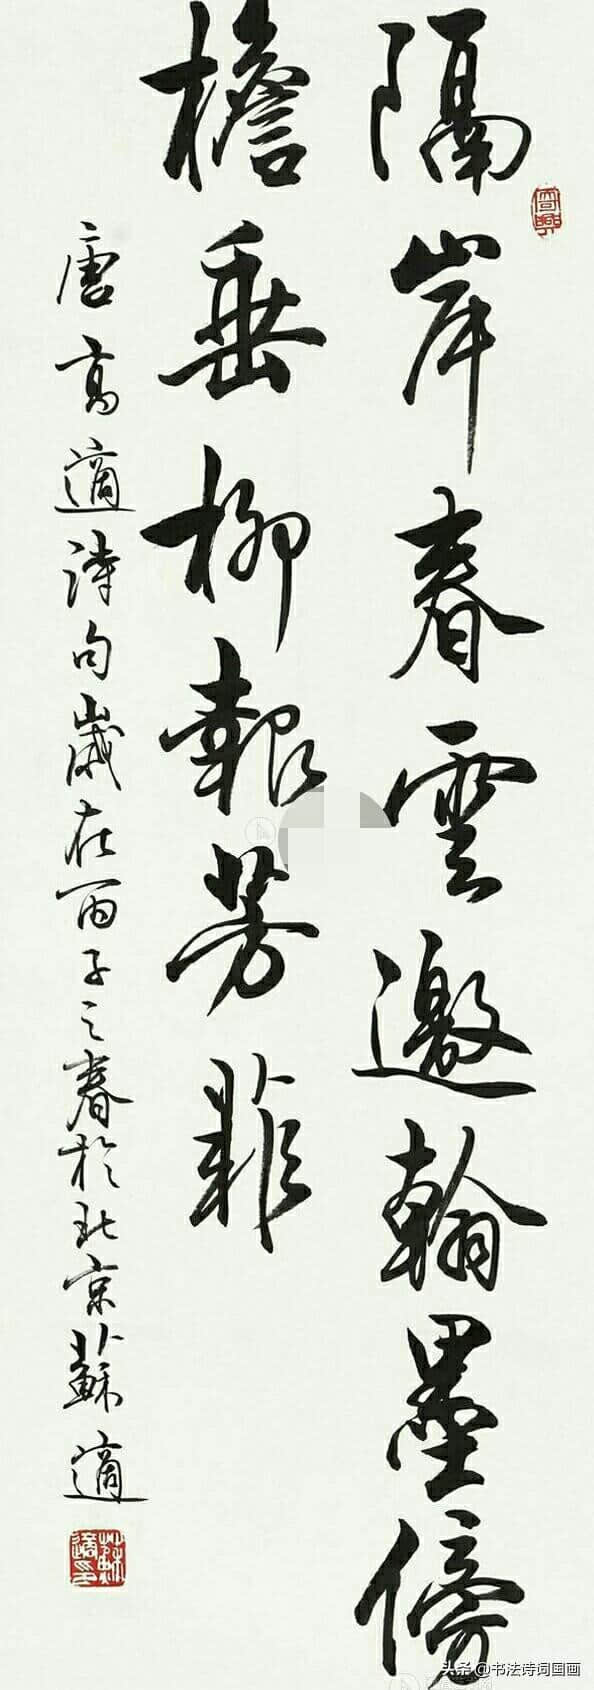 隔岸春雲邀翰墨傍
檐垂柳報芳菲
唐高適詩句歲在丙子之春於北京蘇適
頭条 @书法诗词国画